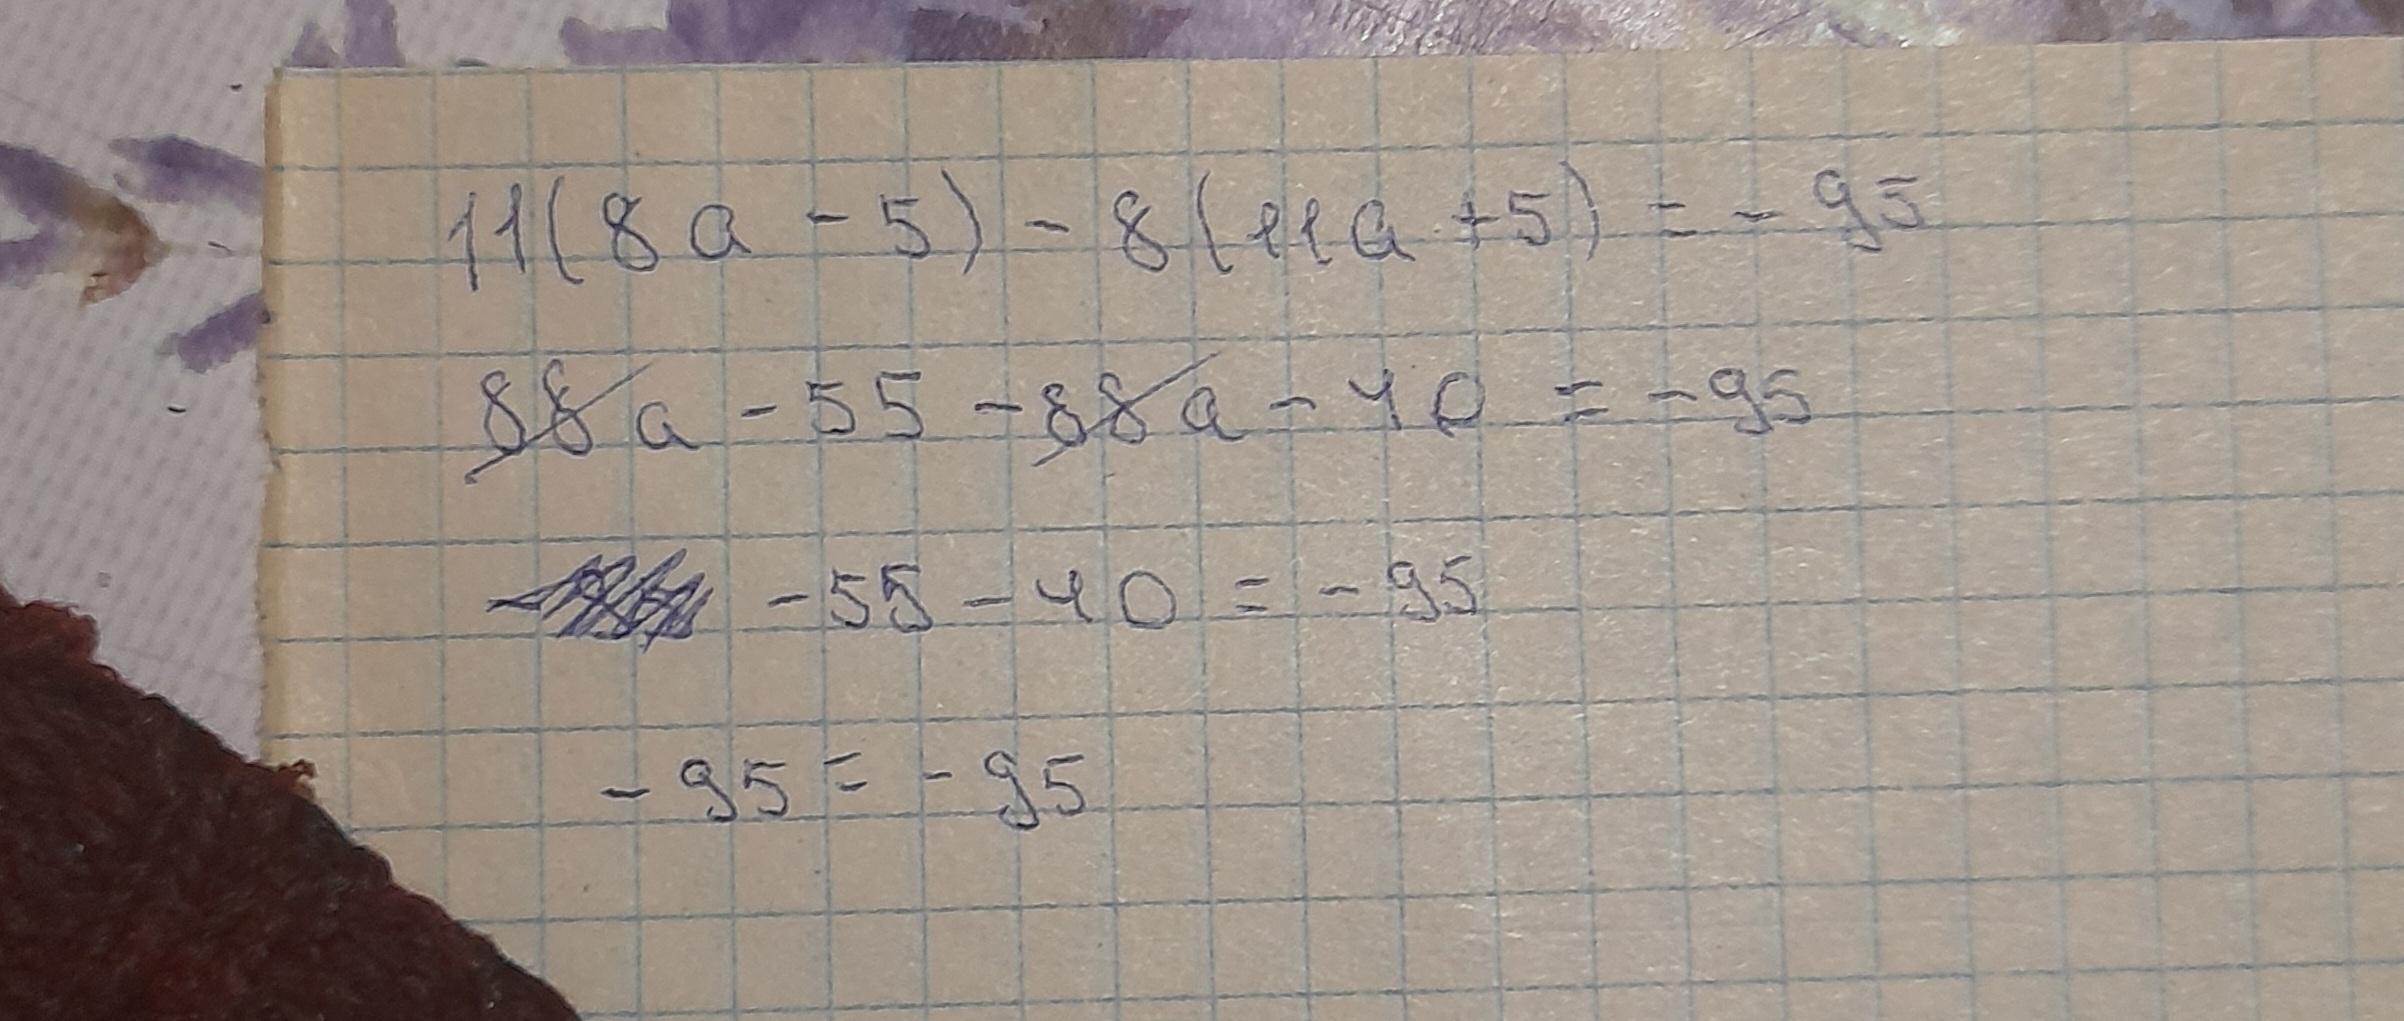 11(8a - 5) - 8(11a + 5) = - 95
88a - 55 - 88a - 40 = - 95
- 55 - 40 = - 95
- 95 = - 95